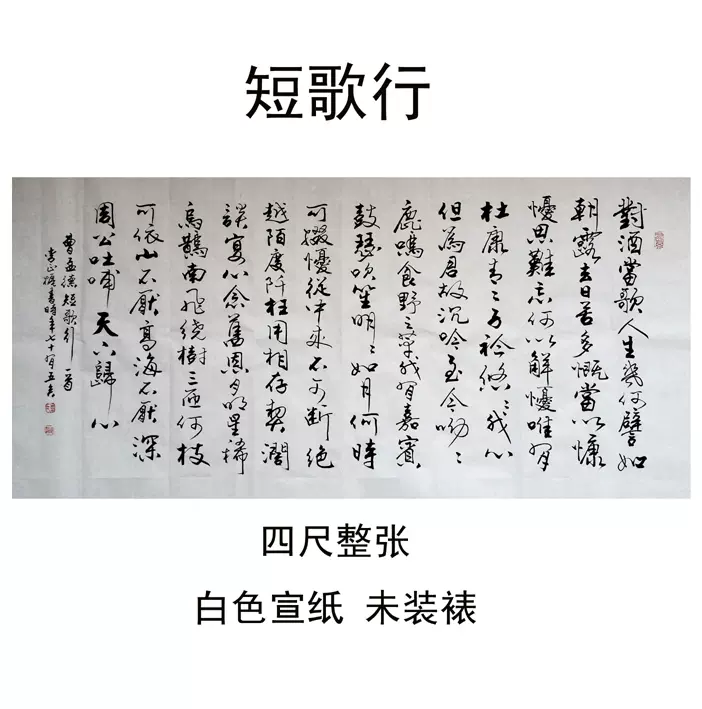 短歌行
對酒當歌人生幾何譬如
朝露去日苦多慨當以慷
懮思難忘何以解懮唯有
杜康青〻子衿悠〻我心
但為君故沉吟至今呦〻
鹿鳴食野之苹我有嘉賓
鼓瑟吹笙明〻如月何時
可掇懮從中來不可斷絕
越陌度阡枉用相存契闊
談宴心念舊恩月明星稀
烏鵲南飛繞樹三匝何枝
可依山不厭高海不厭深
周公吐哺天下歸心
曹孟德短歌行一首
書時年七十有五
四尺整张
白色宣纸 未装裱